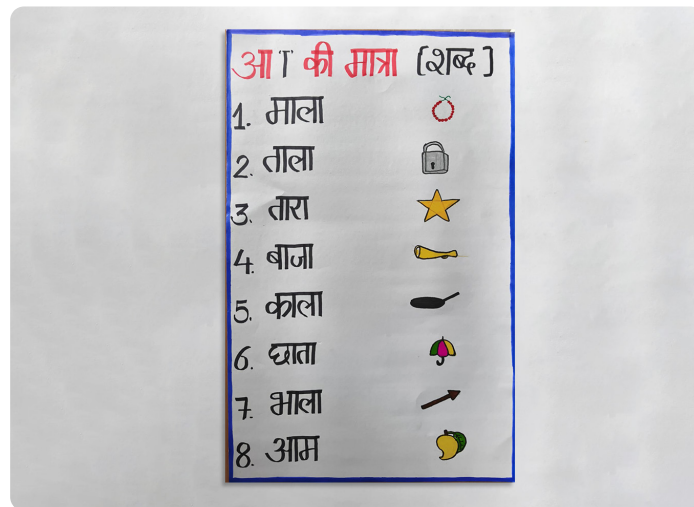 आ ा की मात्रा (शब्द)
1. माला
2. ताला
3. तारा
4. बाजा
5. काला
6. छाता
7. भाला
8. आम